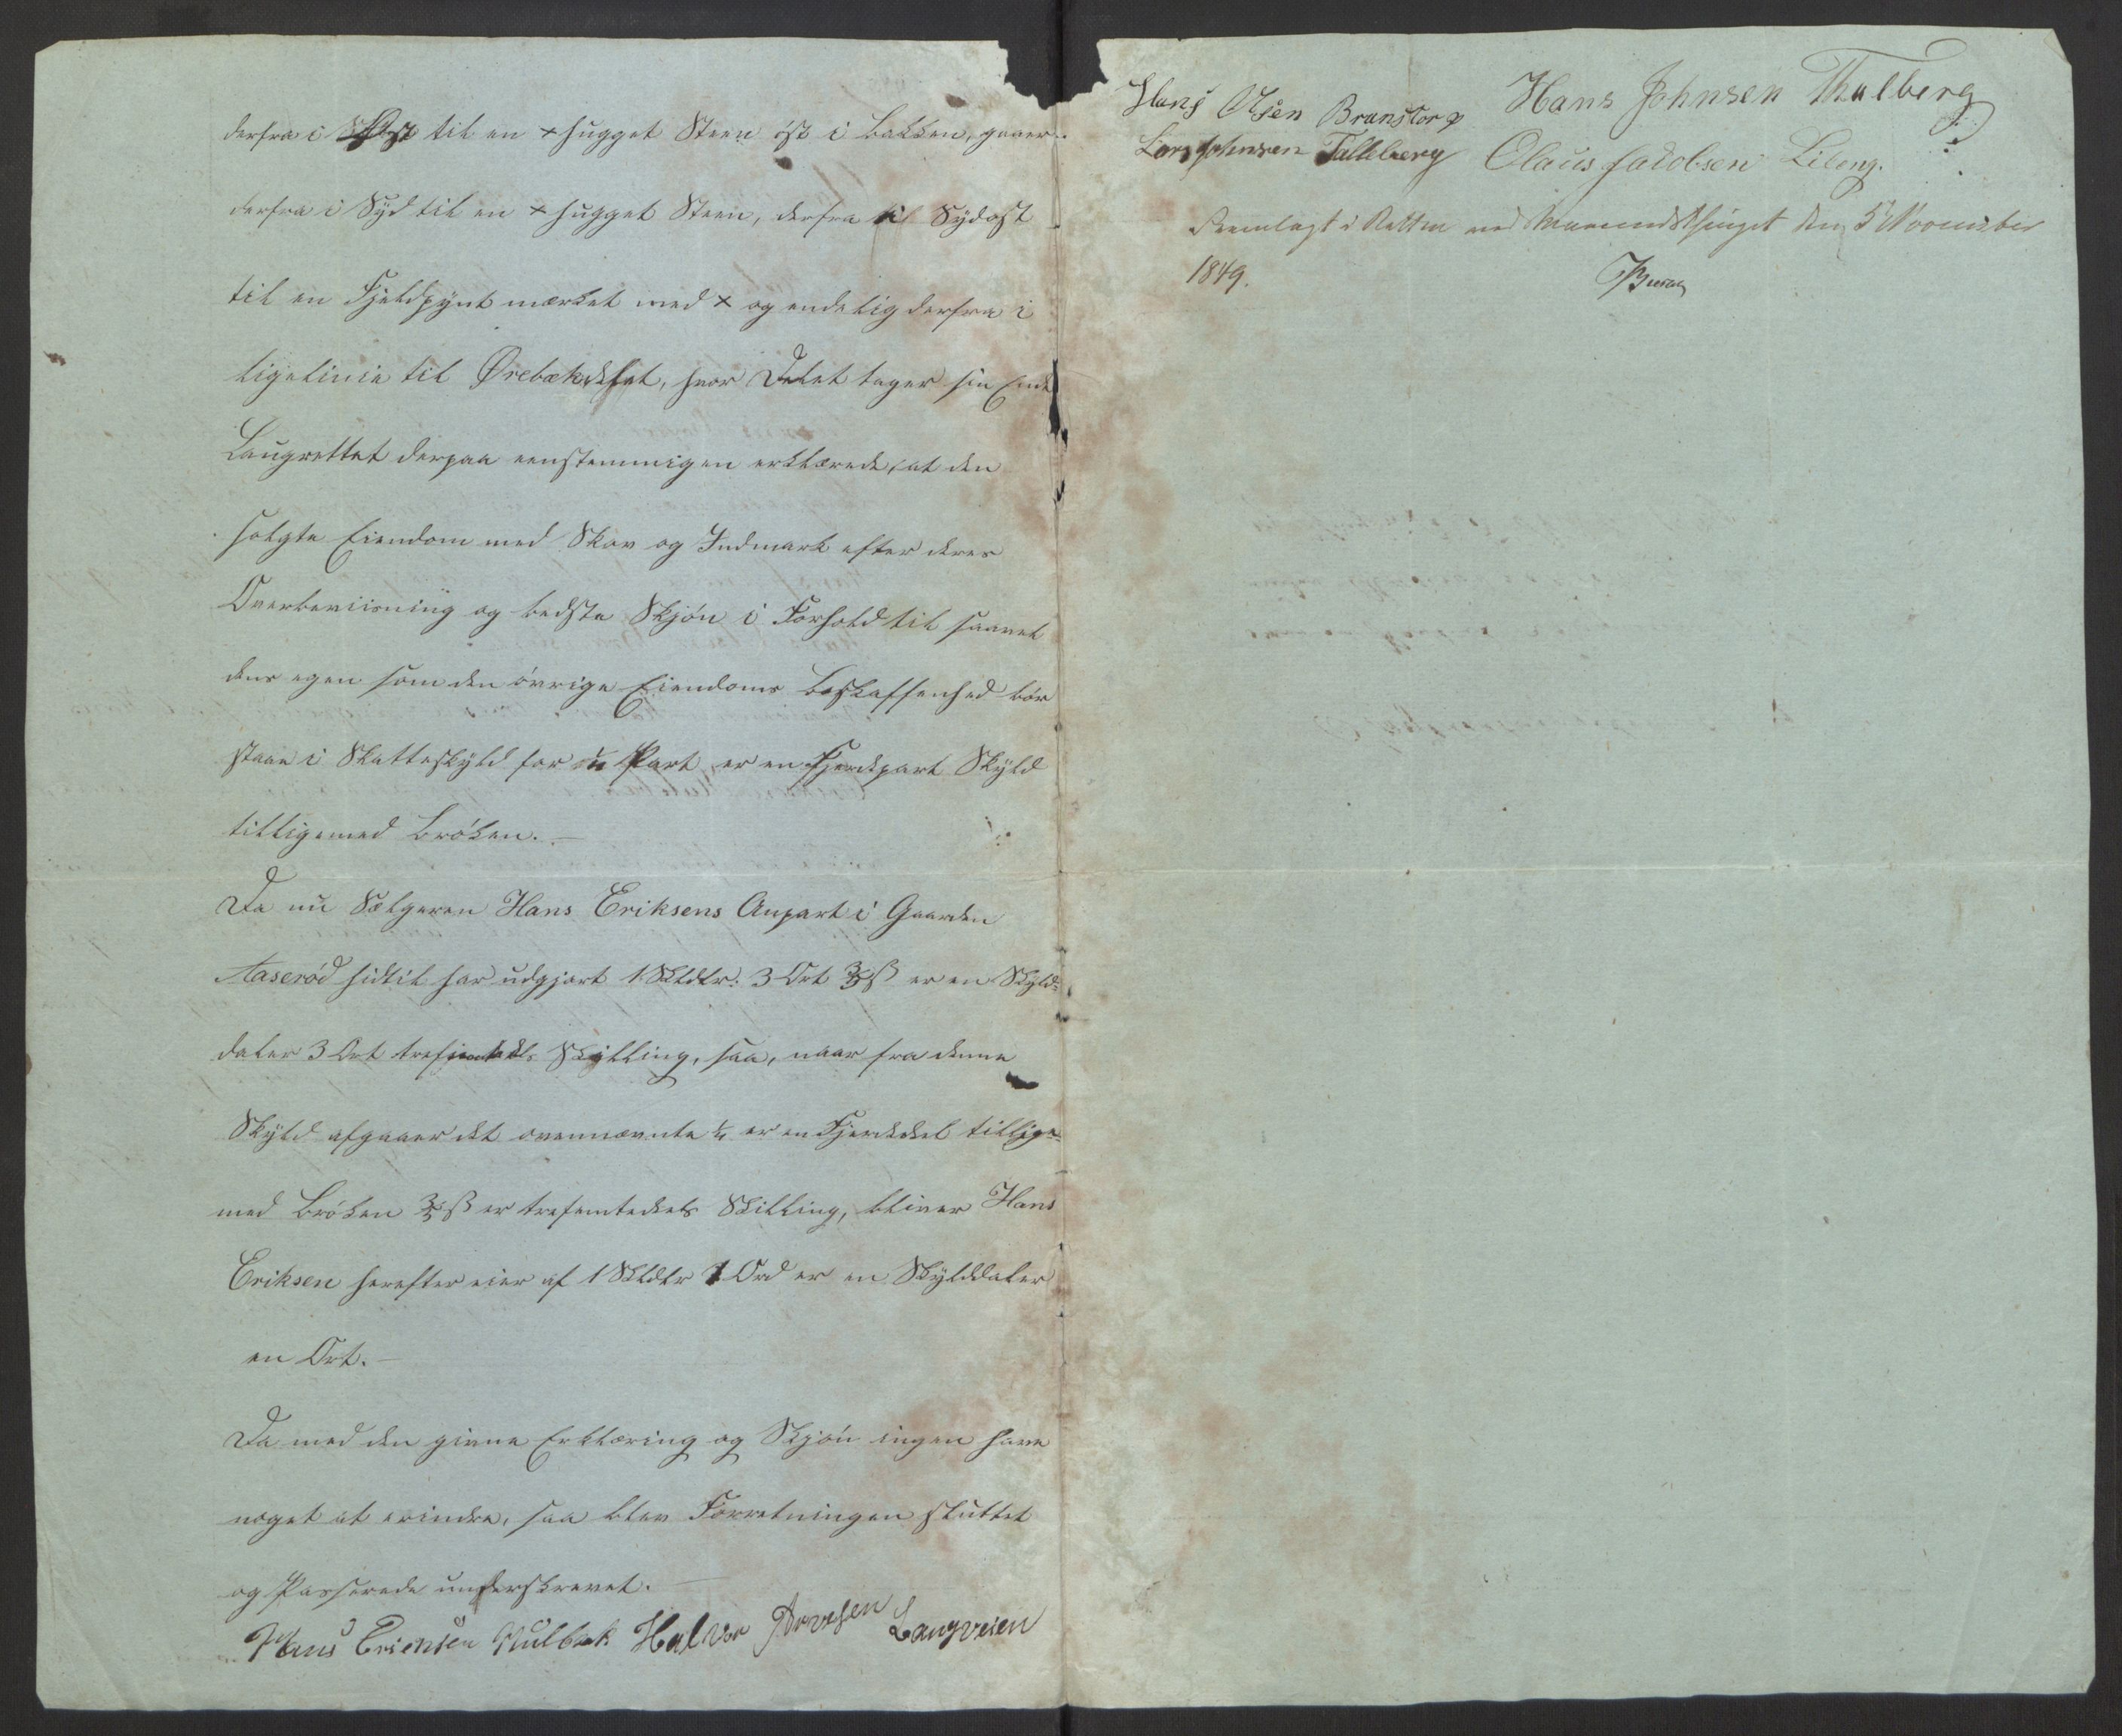 derfra i Øst til en × hugget Steen øst i Bakken, gaaer
derfra i Syd til en × hugget Steen, derfra til Sydost
til en Fjeldpynt mærket med × og endelig derfra i
ligelinie til Ørebækskjel, hvor Delet tager sin Ende
Laugrettet derpaa eenstemmigen erklærede, at den
solgte Eiendom med Skov og Indmark efter deres
Overbeviisning og bedste Skjøn i Forhold til saavel
dens egen som den øvrige Eiendoms Beskaffenhed bør
staae i Skatteskyld for ¼ Part er en Fjerdepart Skyld
tilligemed Brøken. —
Da nu Sælgeren Hans Eriksens Anpart i Gaarden
Aaserød hidtil har udgjort 1 Skldlr. 3 Ort 3/5 ß er en Skyld-
daler 3 Ort trefemtedels Skilling, saa, naar fra denne
Skyld afgaaer det ovennævnte ¼ er en Fjerdedel tillige-
med Brøken 3/5 ß er trefemtedels Skilling, bliver Hans
Eriksen herefter eier af 1 Skldlr 1 Ord er en Skylddaler
en Ort. —
Da med den givne Erklæring og Skjøn ingen have
noget at erindre, saa blev Forretningen sluttet
og Passerede underskrevet. —
Hans Eriensen Hulbak Halvor Arvesen Langveien
Hans Olsen Brunstorp Hans Johnsen Thalberg
Lars Johnsen Talleberg Olaus Jakobsen Lileng.
Fremlagt i Retten ved Maanedsthinget den 5 November
1849.